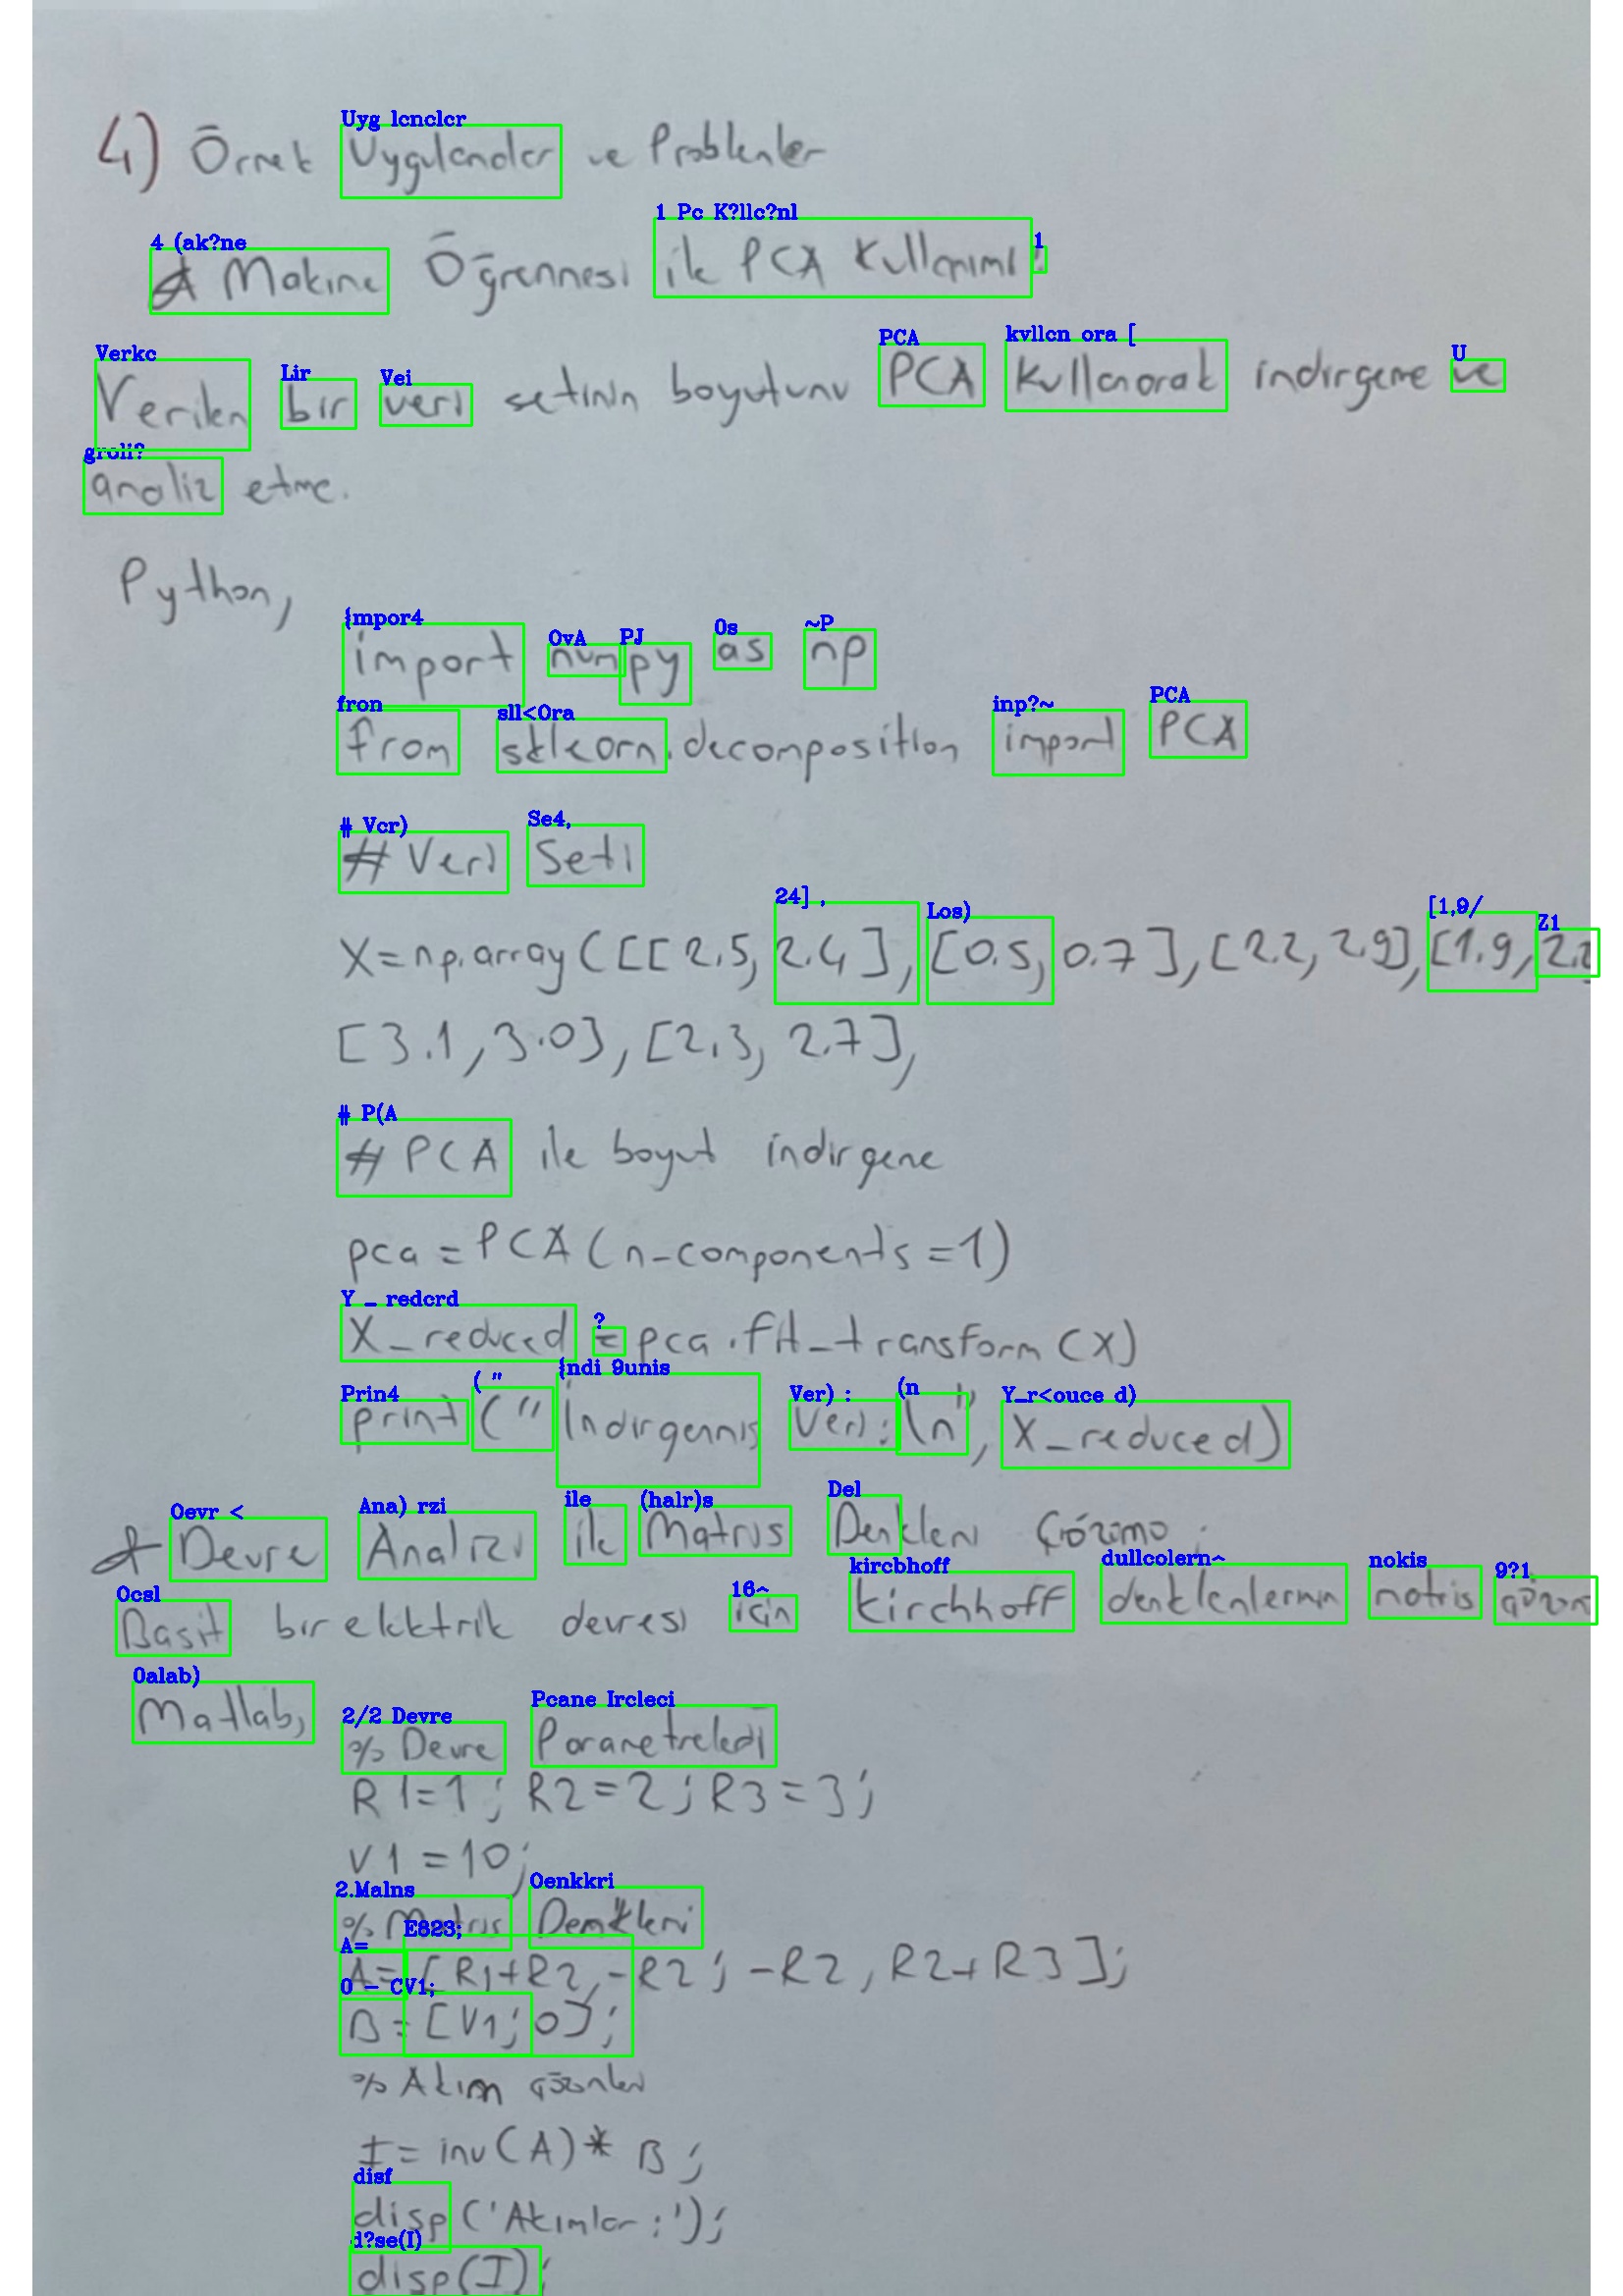 Uyg lcnclcr
4) Örnek Uygulamalar ve Problemler
4 (ak?ne 1 Pc K?llc?nl 1
Makine Öğrenmesi ile PCA Kullanımı :
Verkc Lir Vei PCA kvllcn ora [ U
Verilen bir veri setinin boyutunu PCA kullanarak indirgeme ve
groli?
analiz etme.
Python,
{mpor4 OvA PJ Os ~P
import numpy as np
fron sll<Ora inp?~ PCA
from sklearn.decomposition import PCA
# Vcr) Se4,
# Veri Seti
24] , Los) [1,9/ Z1
X=np.array([[2.5, 2.4], [0.5, 0.7], [2.2, 2.9], [1.9, 2.2
[3.1, 3.0], [2.3, 2.7],
# P(A
# PCA ile boyut indirgeme
pca = PCA (n-components = 1)
Y _ redcrd ?
X_reduced = pca.fit_transform (X)
Prin4 ( " {ndi 9unis Ver) : (n Y_r<ouce d)
print ("İndirgenmiş Veri: \n", X_reduced)
Oevr < Ana) rzi ile (halr)s Del
Devre Analizi ile Matris Denklem Çözümü :
Ocsl 16~ kircbhoff dullcolern~ nokis 9?1
Basit bir elektrik devresi için kirchhoff denklemlerinin matris çözüm
0alab)
Matlab,
2/2 Devre Pcane Ircleci
% Devre Parametreleri
R1=1; R2=2; R3=3;
V1=10;
2.Malns Oenkkri
% Matris Denkleri
A= E823;
A= [R1+R2, -R2; -R2, R2+R3];
0 - CV1;
B= [V1; 0];
% Akım çözümleri
I= inv(A)* B;
disf
disp('Akımlar:');
d?se(I)
disp(I);